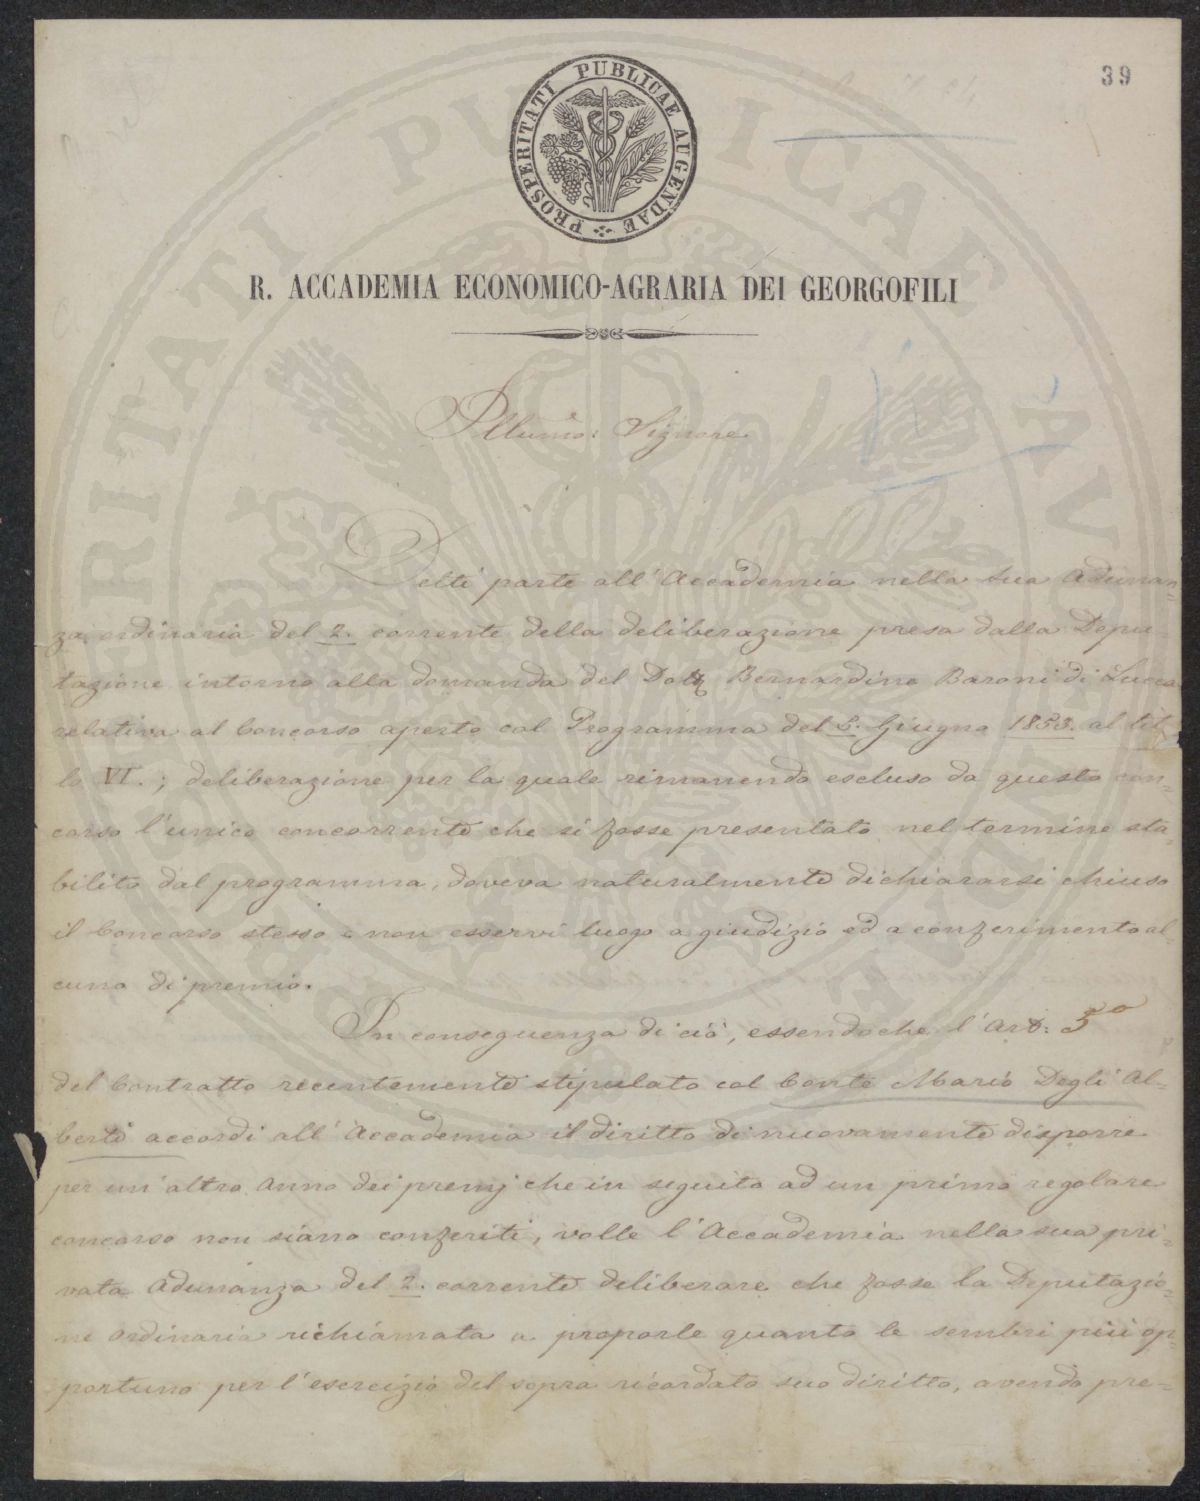 39
PROSPERITATI PUBLICAE AUGENDAE
R. ACCADEMIA ECONOMICO-AGRARIA DEI GEORGOFILI
Illumo: Signore
Detti parte all'Accademia nella sua Adunan=
za ordinaria del 2. corrente della deliberazione presa dalla Depu=
tazione intorno alla domanda del Dott Bernardino Baroni di Lucca
relativa al Concorso aperto col Programma del 5. Giugno 1853. al tit=
lo VI.; deliberazione per la quale rimanendo escluso da questo con=
corso l'unico concorrente che si fosse presentato nel termine sta=
bilito dal programma, doveva naturalmente dichiararsi chiuso
il Concorso stesso e non esservi luogo a giudizio ed a conferimento al=
cuno di premio.
In conseguenza di ciò, essendoche l'Art: 5º
del Contratto recentemente stipulato col Conte Mario Degli Al=
berti accordi all'Accademia il diritto di nuovamente disporre
per un'altro Anno dei premj che in seguito ad un primo regolare
concorso non siano conferiti, volle l'Accademia nella sua pri=
vata Adunanza del 2. corrente deliberare che fosse la Deputazio=
ne ordinaria richiamata a proporle quanto le sembri più op=
portuno per l'esercizio del sopra ricordato suo diritto, avendo pre=